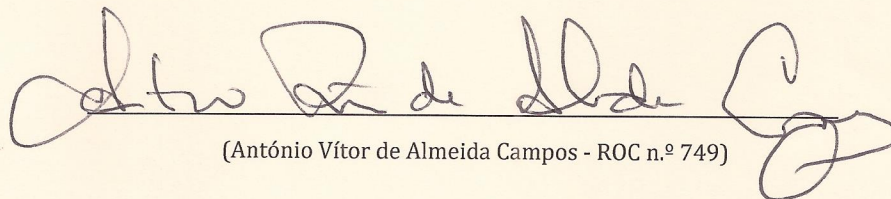 António Vítor de Almeida Campos
(António Vítor de Almeida Campos - ROC n.º 749)